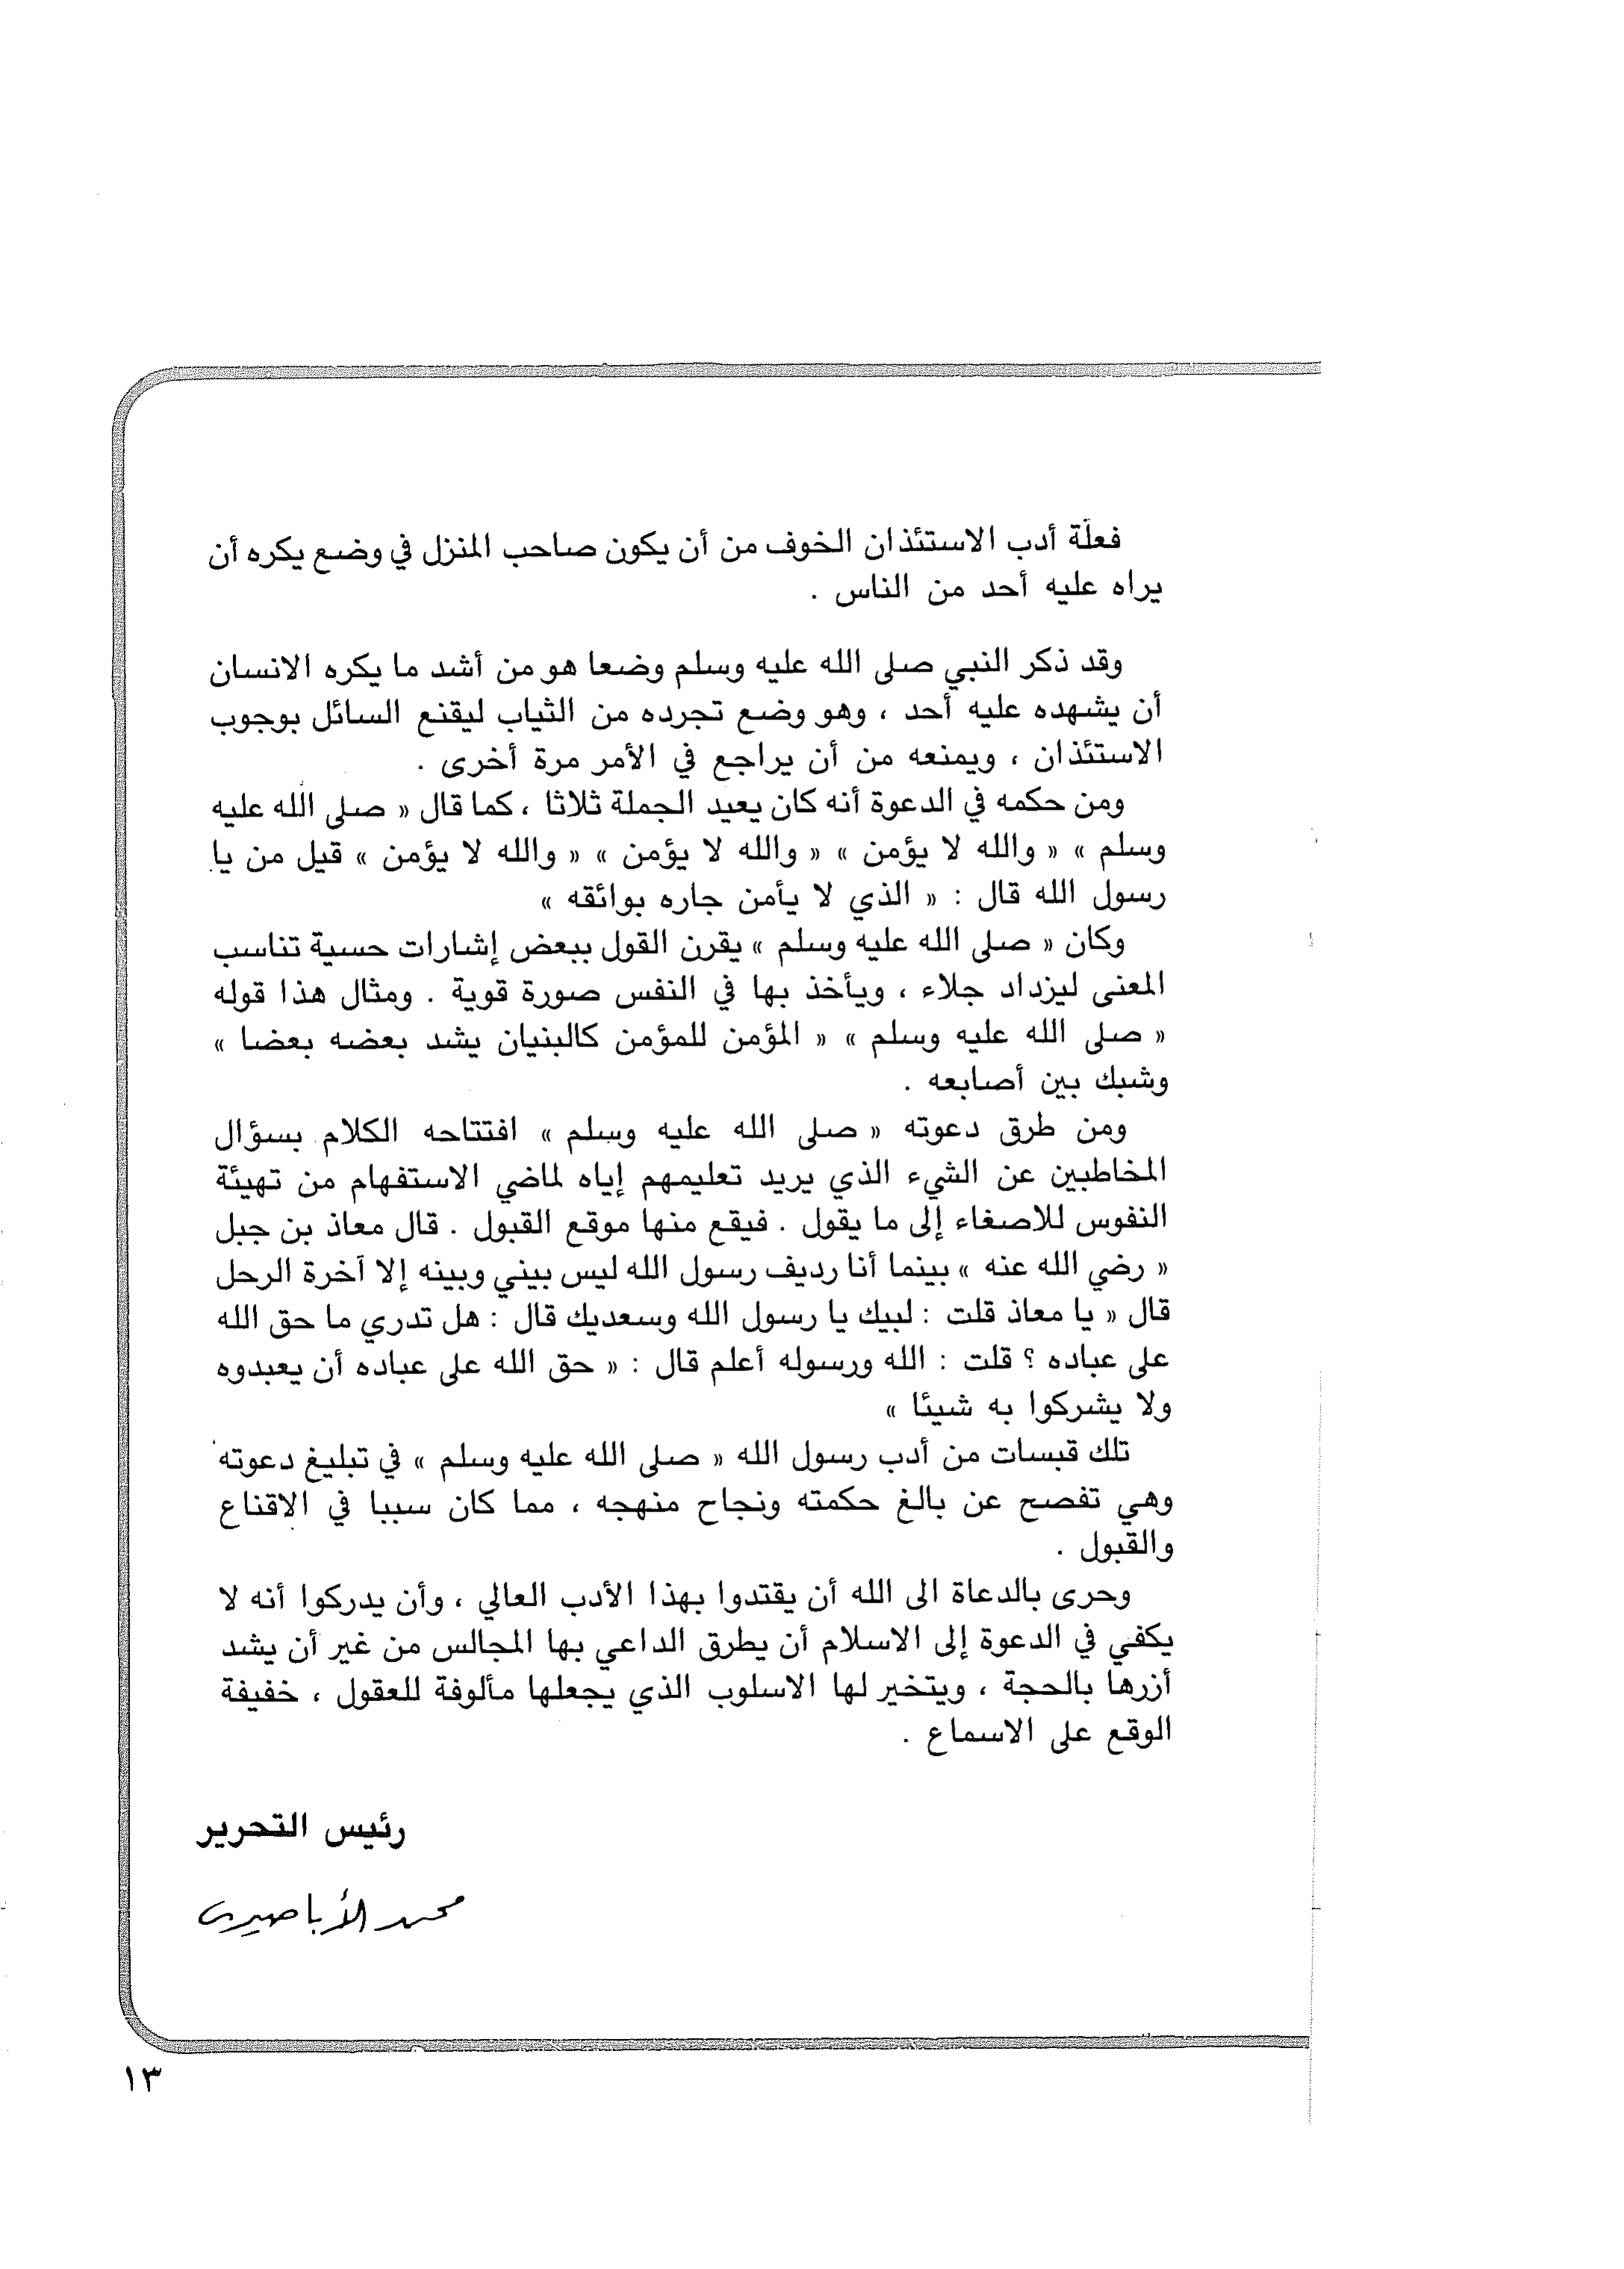 فعلّة أدب الاستئذان الخوف من أن يكون صاحب المنزل في وضع يكره أن
يراه عليه أحد من الناس .
وقد ذكر النبي صلى الله عليه وسلم وضعا هو من أشد ما يكره الانسان
أن يشهده عليه أحد ، وهو وضع تجرده من الثياب ليقنع السائل بوجوب
الاستئذان ، ويمنعه من أن يراجع في الأمر مرة أخرى .
ومن حكمه في الدعوة أنه كان يعيد الجملة ثلاثا ، كما قال « صلى الله عليه
وسلم » « والله لا يؤمن » « والله لا يؤمن » « والله لا يؤمن » قيل من يا
رسول الله قال : « الذي لا يأمن جاره بوائقه »
وكان « صلى الله عليه وسلم » يقرن القول ببعض إشارات حسية تناسب
المعنى ليزداد جلاء ، ويأخذ بها في النفس صورة قوية . ومثال هذا قوله
« صلى الله عليه وسلم » « المؤمن للمؤمن كالبنيان يشد بعضه بعضا »
وشبك بين أصابعه .
ومن طرق دعوته « صلى الله عليه وسلم » افتتاحه الكلام بسؤال
المخاطبين عن الشيء الذي يريد تعليمهم إياه لماضي الاستفهام من تهيئة
النفوس للاصغاء إلى ما يقول . فيقع منها موقع القبول . قال معاذ بن جبل
« رضي الله عنه » بينما أنا رديف رسول الله ليس بيني وبينه إلا آخرة الرحل
قال « يا معاذ قلت : لبيك يا رسول الله وسعديك قال : هل تدري ما حق الله
على عباده ؟ قلت : الله ورسوله أعلم قال : « حق الله على عباده أن يعبدوه
ولا يشركوا به شيئا »
تلك قبسات من أدب رسول الله « صلى الله عليه وسلم » في تبليغ دعوته
وهي تفصح عن بالغ حكمته ونجاح منهجه ، مما كان سببا في الاقناع
والقبول .
وحرى بالدعاة الى الله أن يقتدوا بهذا الأدب العالي ، وأن يدركوا أنه لا
يكفي في الدعوة إلى الاسلام أن يطرق الداعي بها المجالس من غير أن يشد
أزرها بالحجة ، ويتخير لها الاسلوب الذي يجعلها مألوفة للعقول ، خفيفة
الوقع على الاسماع .
رئيس التحرير
محمد الأباصيري
١٣